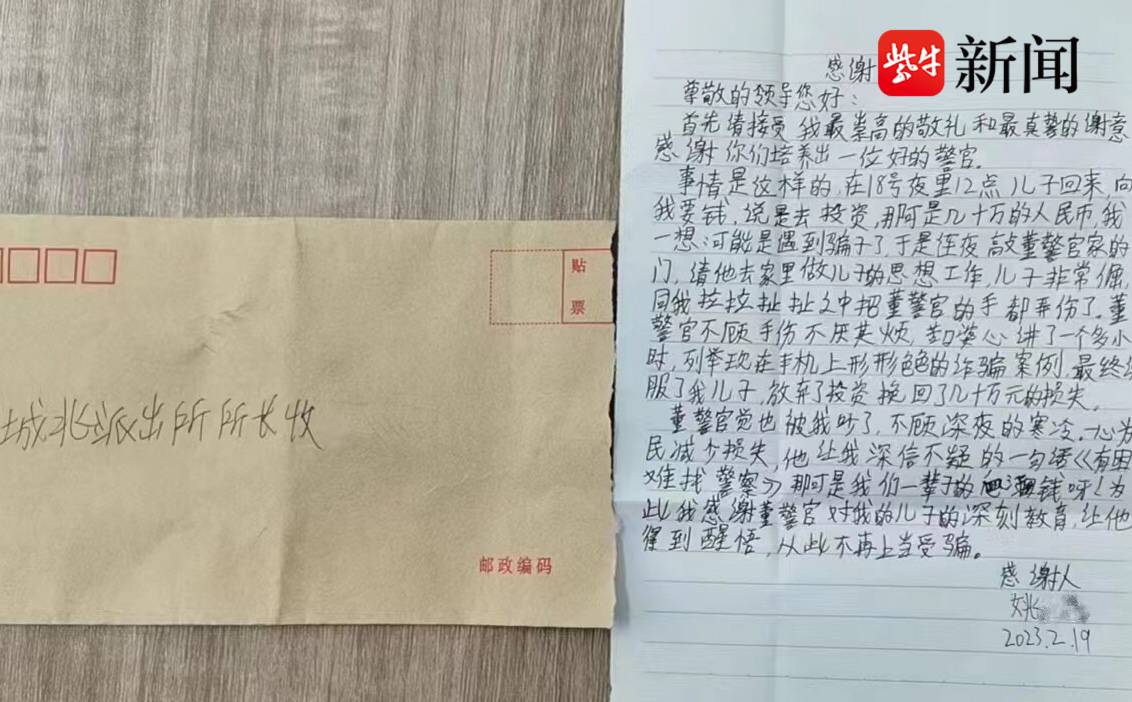 紫牛新闻
贴
票
城北派出所所长收
邮政编码
感谢
尊敬的领导您好：
首先请接受我最崇高的敬礼和最真挚的谢意
感谢你们培养出一位好的警官。
事情是这样的，在18号夜里12点儿子回来，向
我要钱，说是去投资，那可是几十万的人民币，我
一想可能是遇到骗子了，于是连夜敲董警官家的
门，请他去家里做儿子的思想工作，儿子非常倔，
同我拉拉扯扯之中把董警官的手都弄伤了。董
警官不顾手伤不厌其烦，苦口婆心讲了一个多小
时，列举现在手机上形形色色的诈骗案例，最终
服了我儿子，放弃了投资挽回了几十万元的损失。
董警官觉也被我吵了，不顾深夜的寒冷，一心为
民减少损失，他让我深信不疑的一句话《有困
难找警察》那可是我们一辈子的钱呀！为
此我感谢董警官对我的儿子的深刻教育，让他
得到醒悟，从此不再上当受骗。
感谢人
姚
2023.2.19